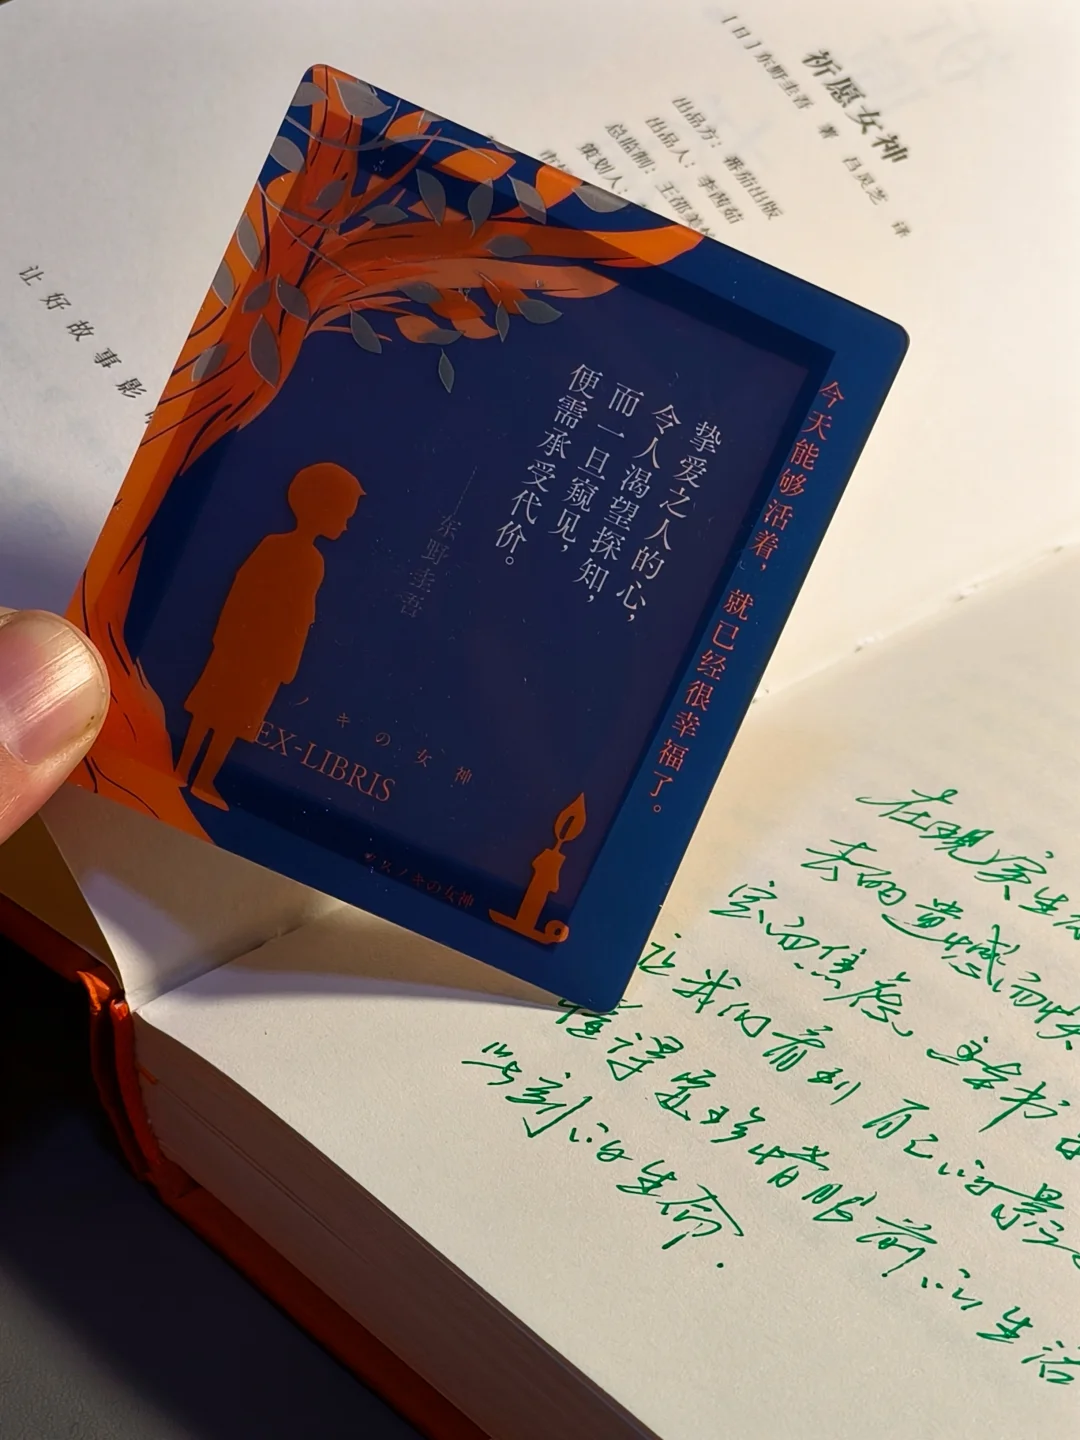 祈愿女神
[日]东野圭吾 著 吕灵芝 译
出品方：番茄出版
出品人：李茜茹
总监制：王邵美
策划人：
让好故事影
今天能够活着，就已经很幸福了。
挚爱之人的心，
令人渴望探知，
而一旦窥见，
便需承受代价。
——东野圭吾
ノキの女神
EX-LIBRIS
クスノキの女神
在现实生活
去的遗憾而
而焦虑。这本书
让我们看到自己的影
懂得更珍惜眼前的生活
此刻的生命.